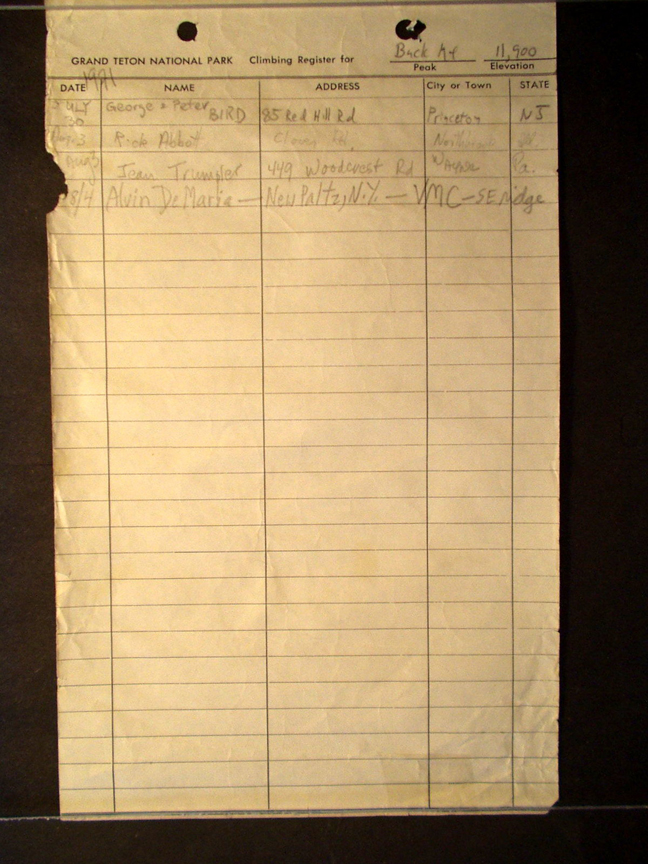 GRAND TETON NATIONAL PARK Climbing Register for Buck Mt 11,900
Peak Elevation
1971
DATE NAME ADDRESS City or Town STATE
JULY 30 George & Peter BIRD 85 Red Hill Rd Princeton NJ
Aug. 3 Rick Abbot
Aug 3 Jean Trumpler 449 Woodcrest Rd Wayne Pa.
8/4 Alvin DeMaria — New Paltz, N.Y. — VMC — SE ridge